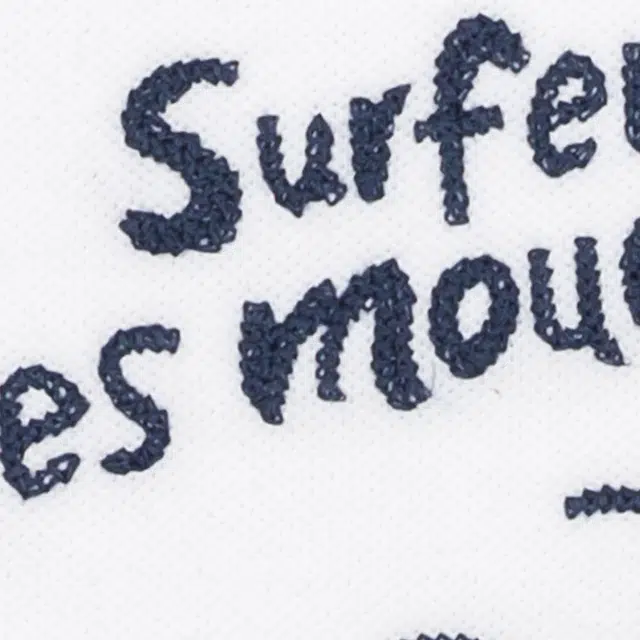 Surfe
es mou